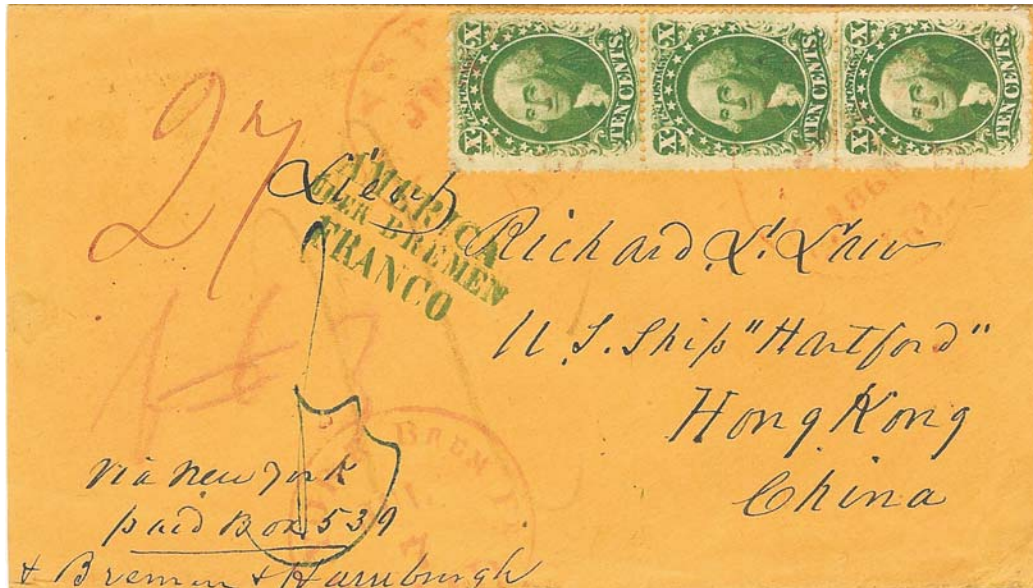 X X
U.S. POSTAGE
TEN CENTS.
X X
U.S. POSTAGE
TEN CENTS.
X X
U.S. POSTAGE
TEN CENTS.
27
AMERICA
UBER BREMEN
FRANCO
Lieut
Richard L. Law
U.S. Ship "Hartford"
Hong Kong
China
BREM
Via New York
paid Box 539
+ Bremen + Hamburgh